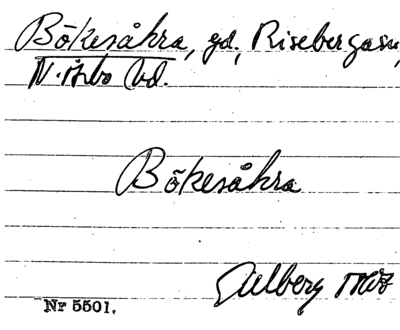 Bökesåkra, gd., Riseberga sn,
N. Åsbo hd.
Bökesåkra
Nr 5501.